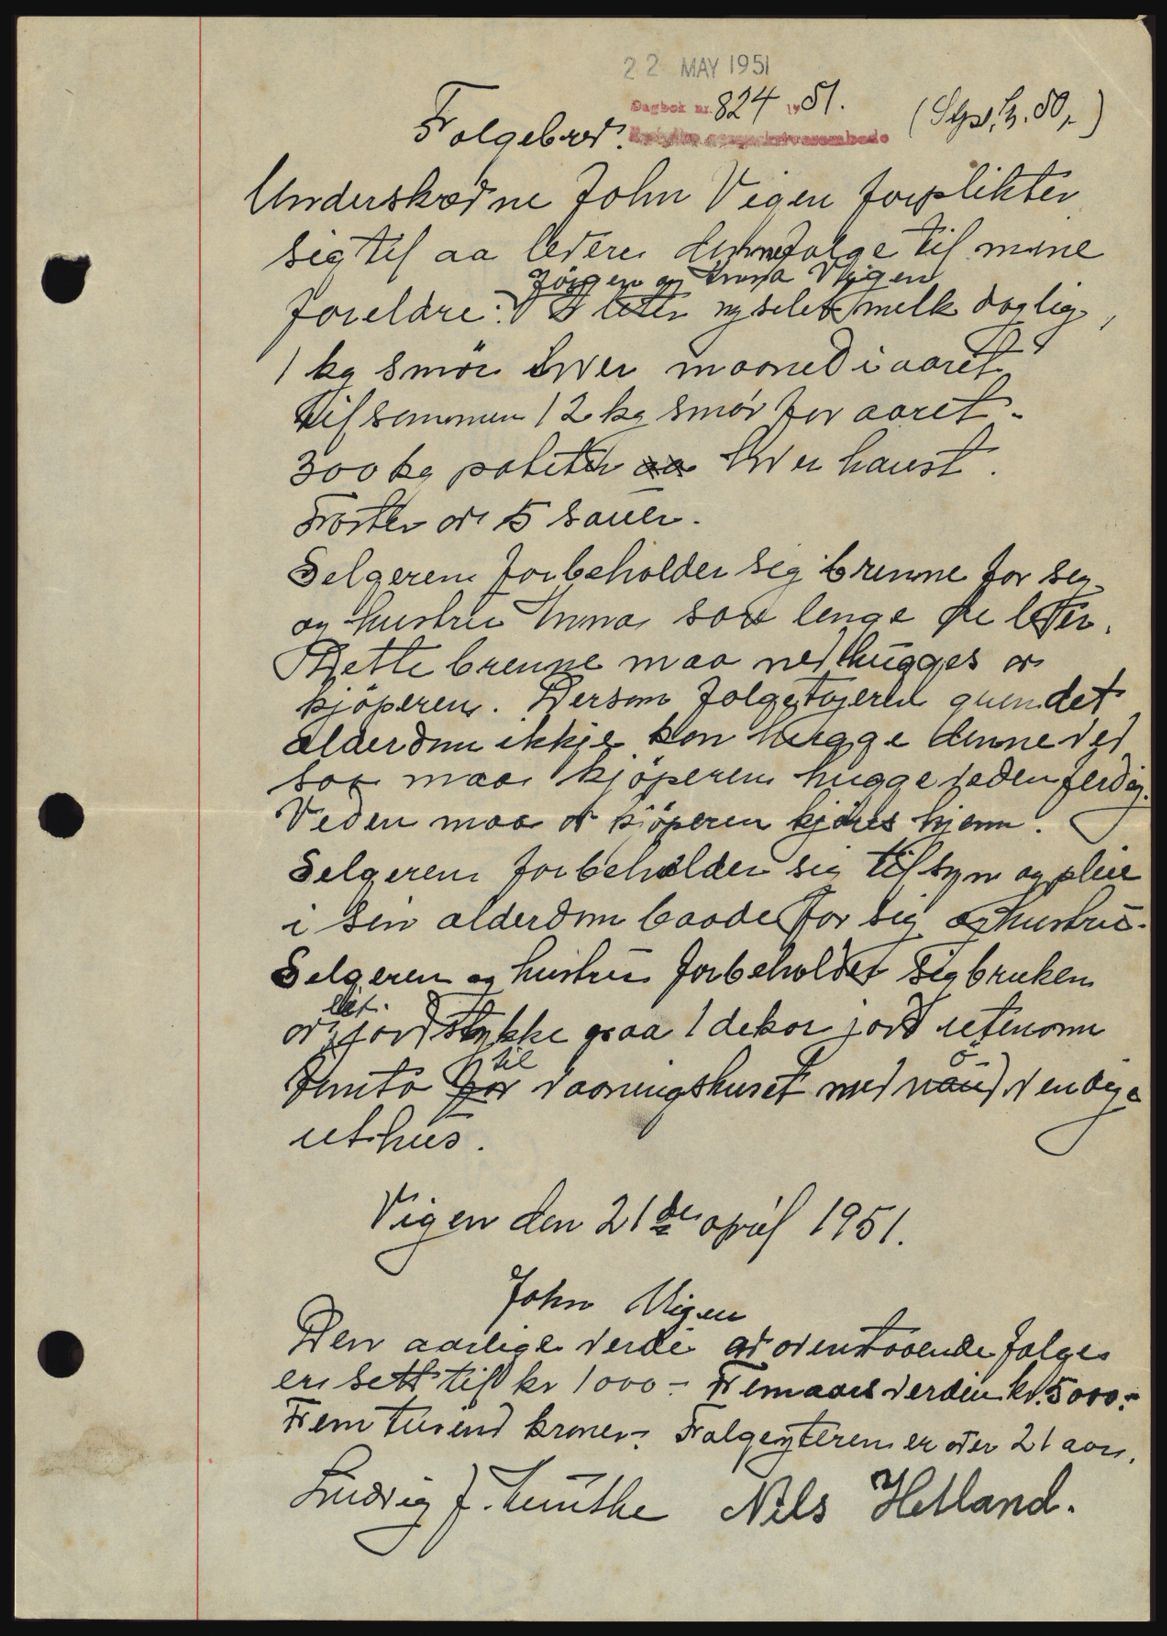 22 MAY 1951
Dagbok nr. 824 19 51.
(Stpl. kr. 50,-)
Folgebrev.
Underskrevne John Vigen forplikter
sig til aa levere denne folge til mine
Jørgen og Anna Vigen
foreldre: liter nysilet melk daglig,
1 kg smør hver maaned i aaret
tilsammen 12 kg smør for aaret.
300 kg poteter aa hver haust.
Foster av 5 sauer.
Selgeren forbeholder sig brenne for seg
og hustru Anna saa lenge de lever.
Dette brenne maa nedhugges av
kjøperen. Dersom folgetageren
alderdom ikkje kan hugge denne ved
saa maa kjøperen hugge veden ferdig.
Veden maa av kjøperen kjøres hjem.
Selgeren forbeholder sig tilsyn og pleie
i sin alderdom baade for sig og hustru.
Selgeren og hustru forbeholder sig bruken
eit
av jordstykke paa 1 dekar jord utenom
til ö
tomta for vaaningshuset med naudvendige
uthus.
Vigen den 21de april 1951.
John Vigen
Den aarlige verdi av ovenstaaende folge
er sett til kr 1000.- Femaarsverdien kr. 5000.-
Fem tusind kroner. Folgeyteren er over 21 aar.
Ludvig J. Munthe Nils Hetland.